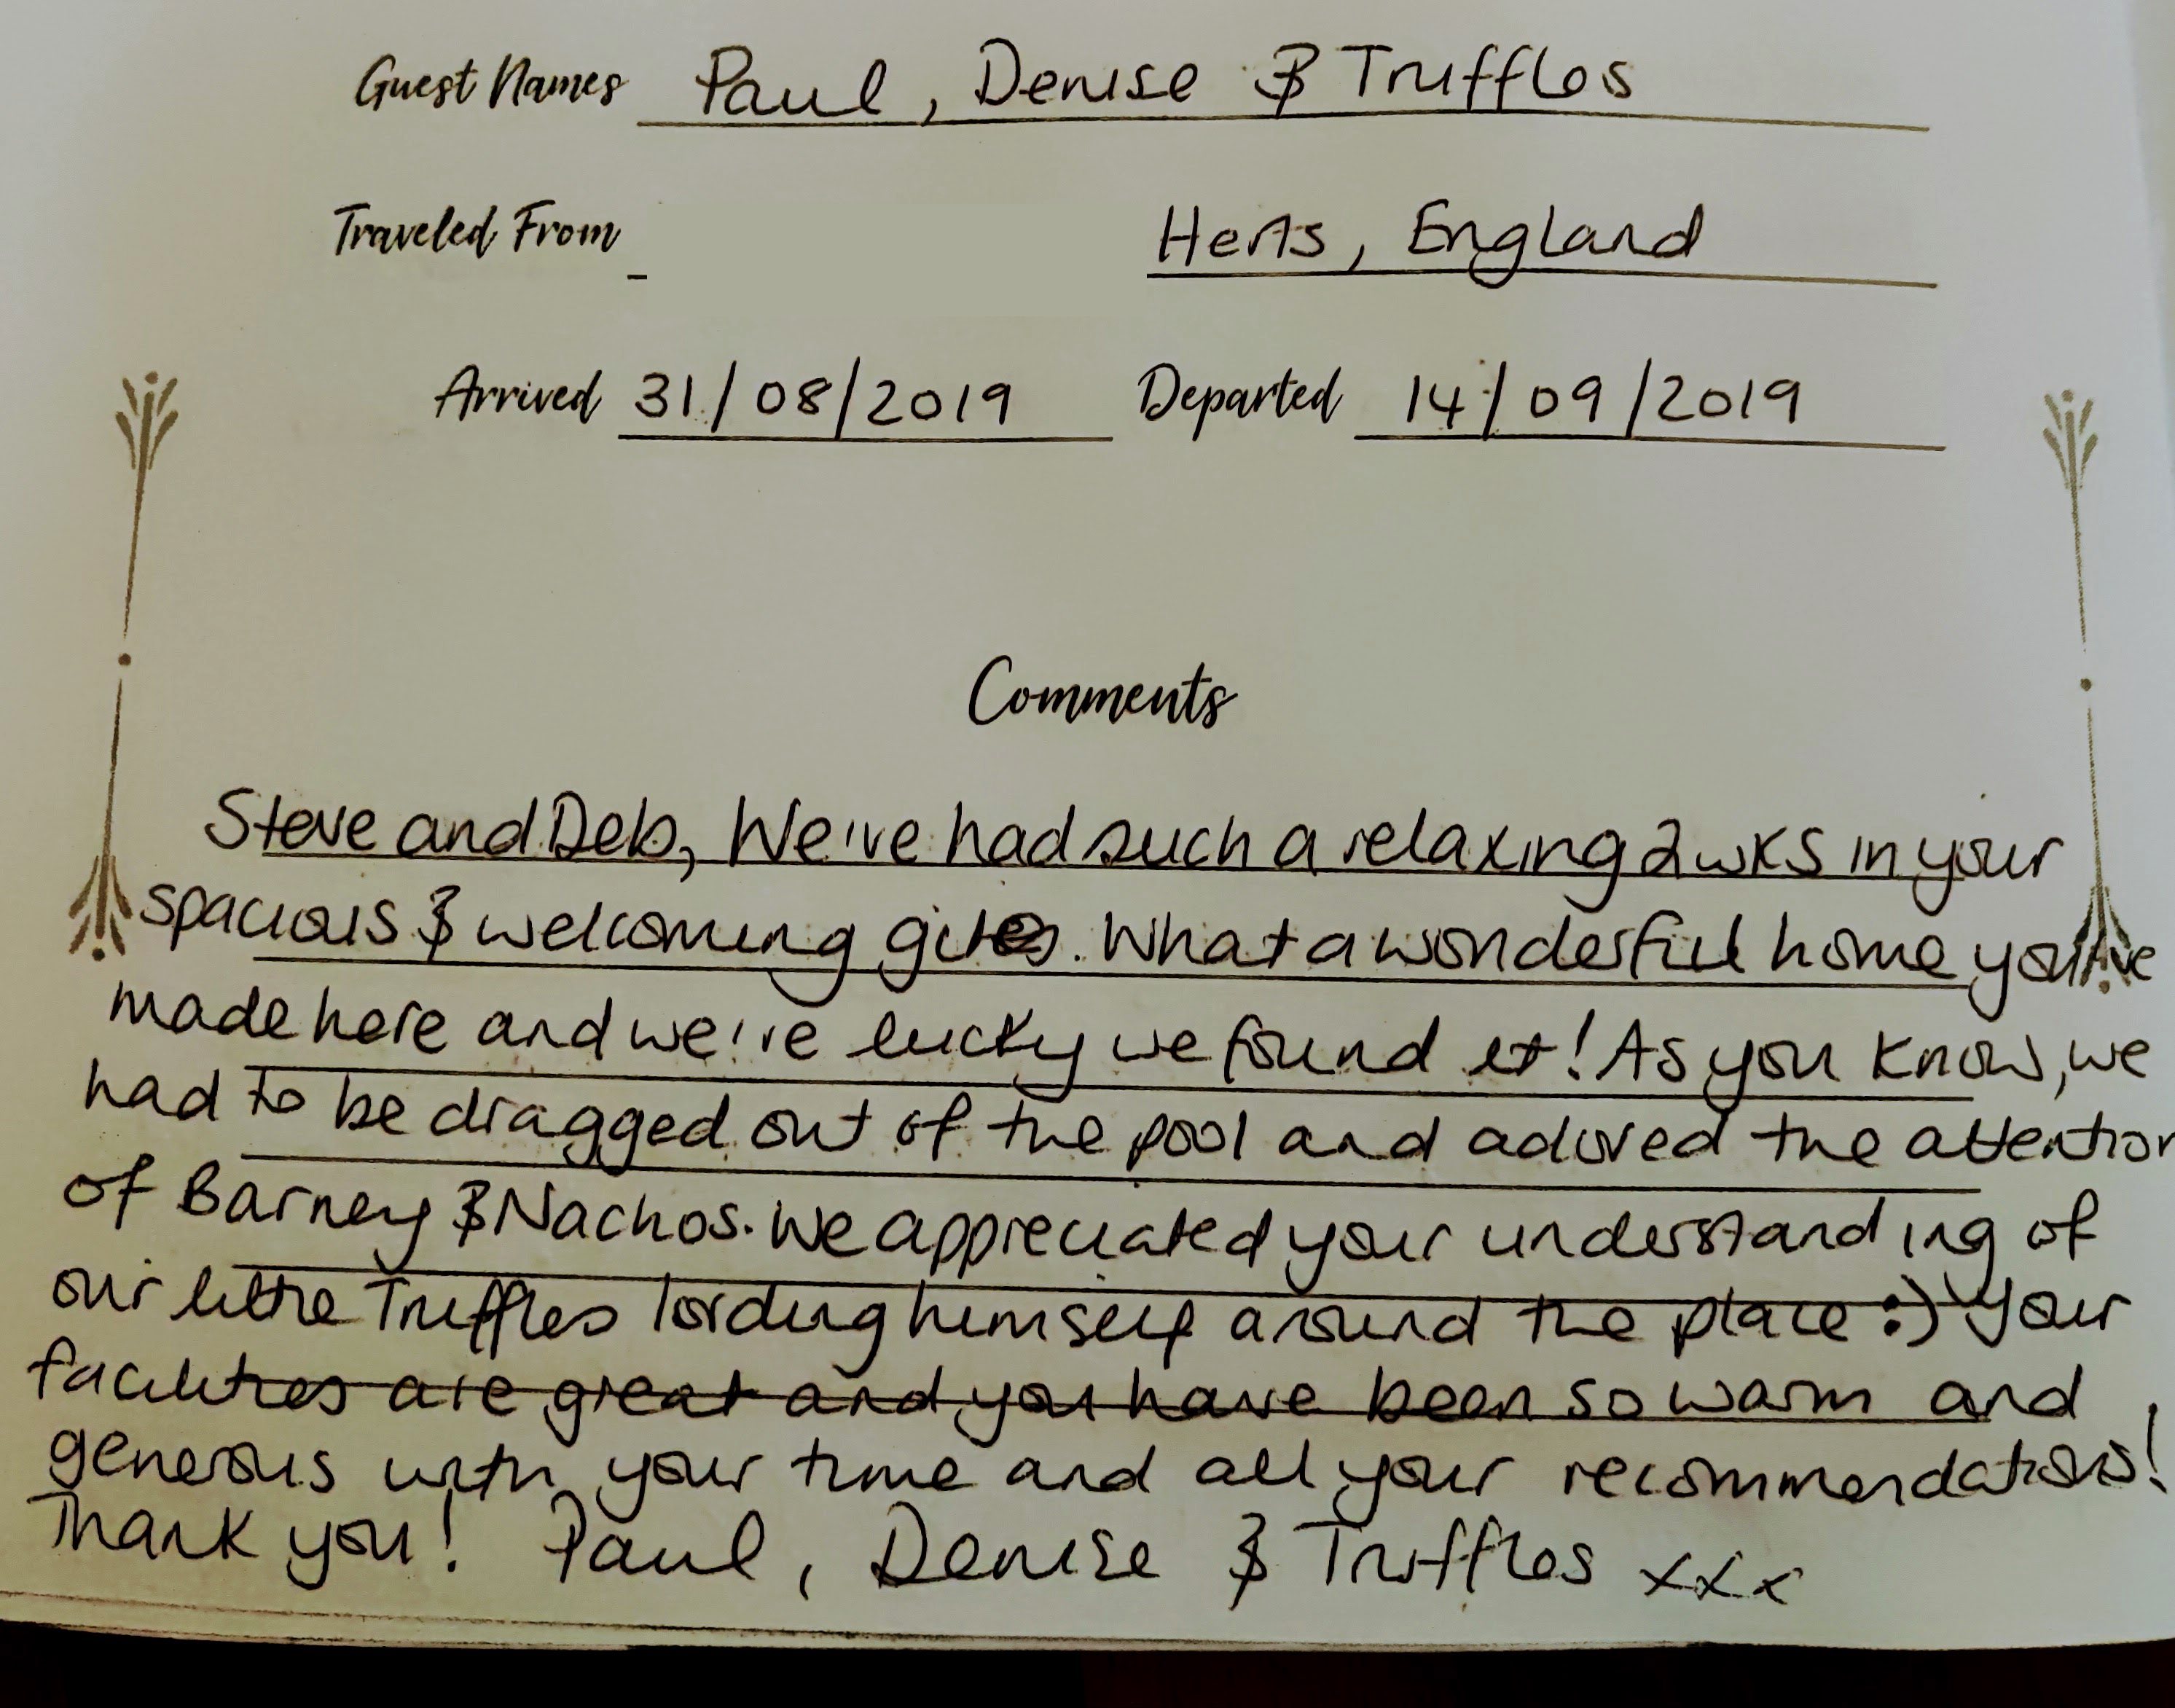 Guest Names Paul, Denise & Truffles
Traveled From Herts, England
Arrived 31/08/2019 Departed 14/09/2019
Comments
Steve and Deb, We've had such a relaxing 2 wks in your
spacious & welcoming gites. What a wonderful home you've
made here and we're lucky we found it! As you know, we
had to be dragged out of the pool and adored the attention
of Barney & Nachos. We appreciated your understanding of
our little Truffles lording himself around the place :) Your
facilities are great and you have been so warm and
generous with your time and all your recommendations!
Thank you! Paul, Denise & Truffles xxx